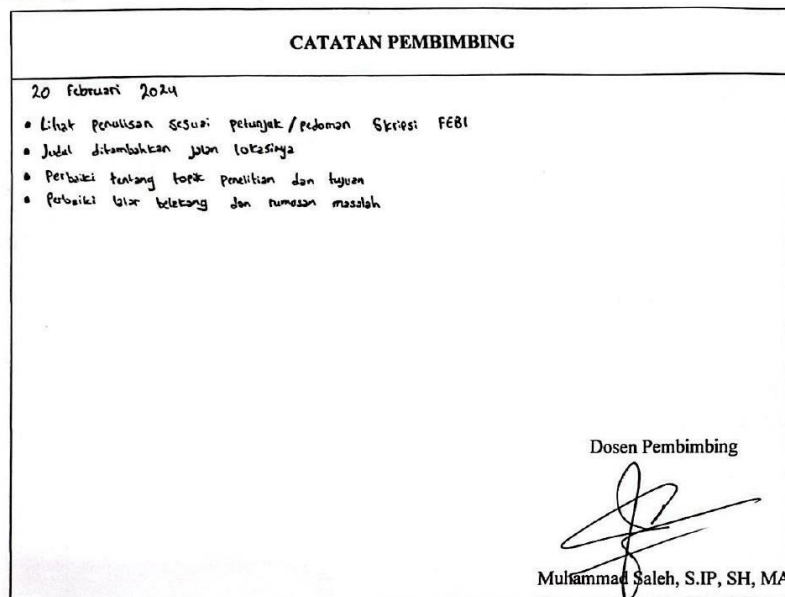 CATATAN PEMBIMBING
20 Februari 2024
• Lihat penulisan sesuai petunjuk/pedoman Skripsi FEBI
• Judul ditambahkan jalan lokasinya
• Perbaiki tentang topik penelitian dan tujuan
• Perbaiki latar belakang dan rumusan masalah
Dosen Pembimbing
Muhammad Saleh, S.IP, SH, MA